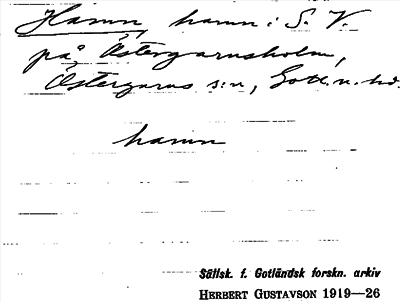 Hamn, hamn i S. V.
på Östergarnsholm,
Östergarns s:n, Gotl. n. hd.
hamn
Sällsk. f. Gotländsk forskn. arkiv
HERBERT GUSTAVSON 1919—26